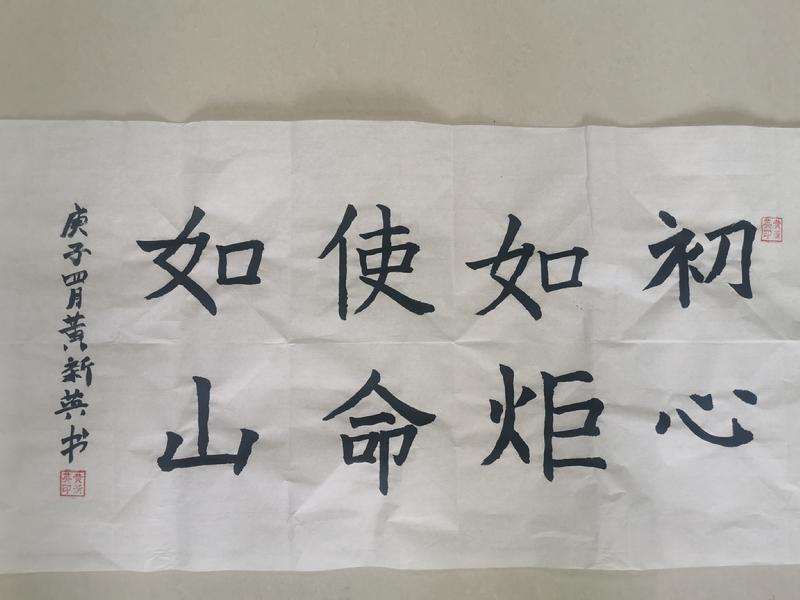 初心
如炬
使命
如山
庚子四月黄新英书